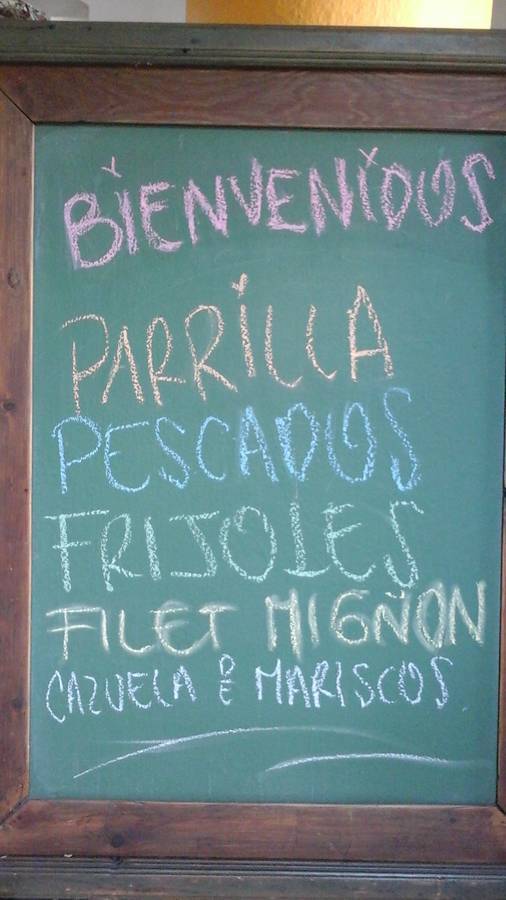 BIENVENIDOS
PARRILLA
PESCADOS
FRIJOLES
FILET MIGÑON
CAZUELA DE MARISCOS